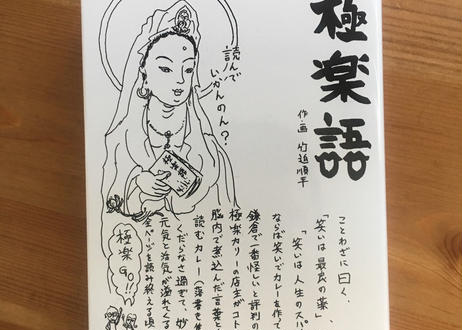 極楽語
作・画 竹迫順平
読んで
いかんのん？
ことわざに曰く、
「笑いは最良の薬」、
「笑いは人生のスパ
ならば笑いでカレーを作って
鎌倉で一番怪しいと評判の
極楽カリーの店主がコト
脳内で煮込んだ言葉と
読むカレー(落書を
くだらなさ過ぎて、妙
元気と活気が溢れてる
全ページを読み終える頃
極楽GO!!